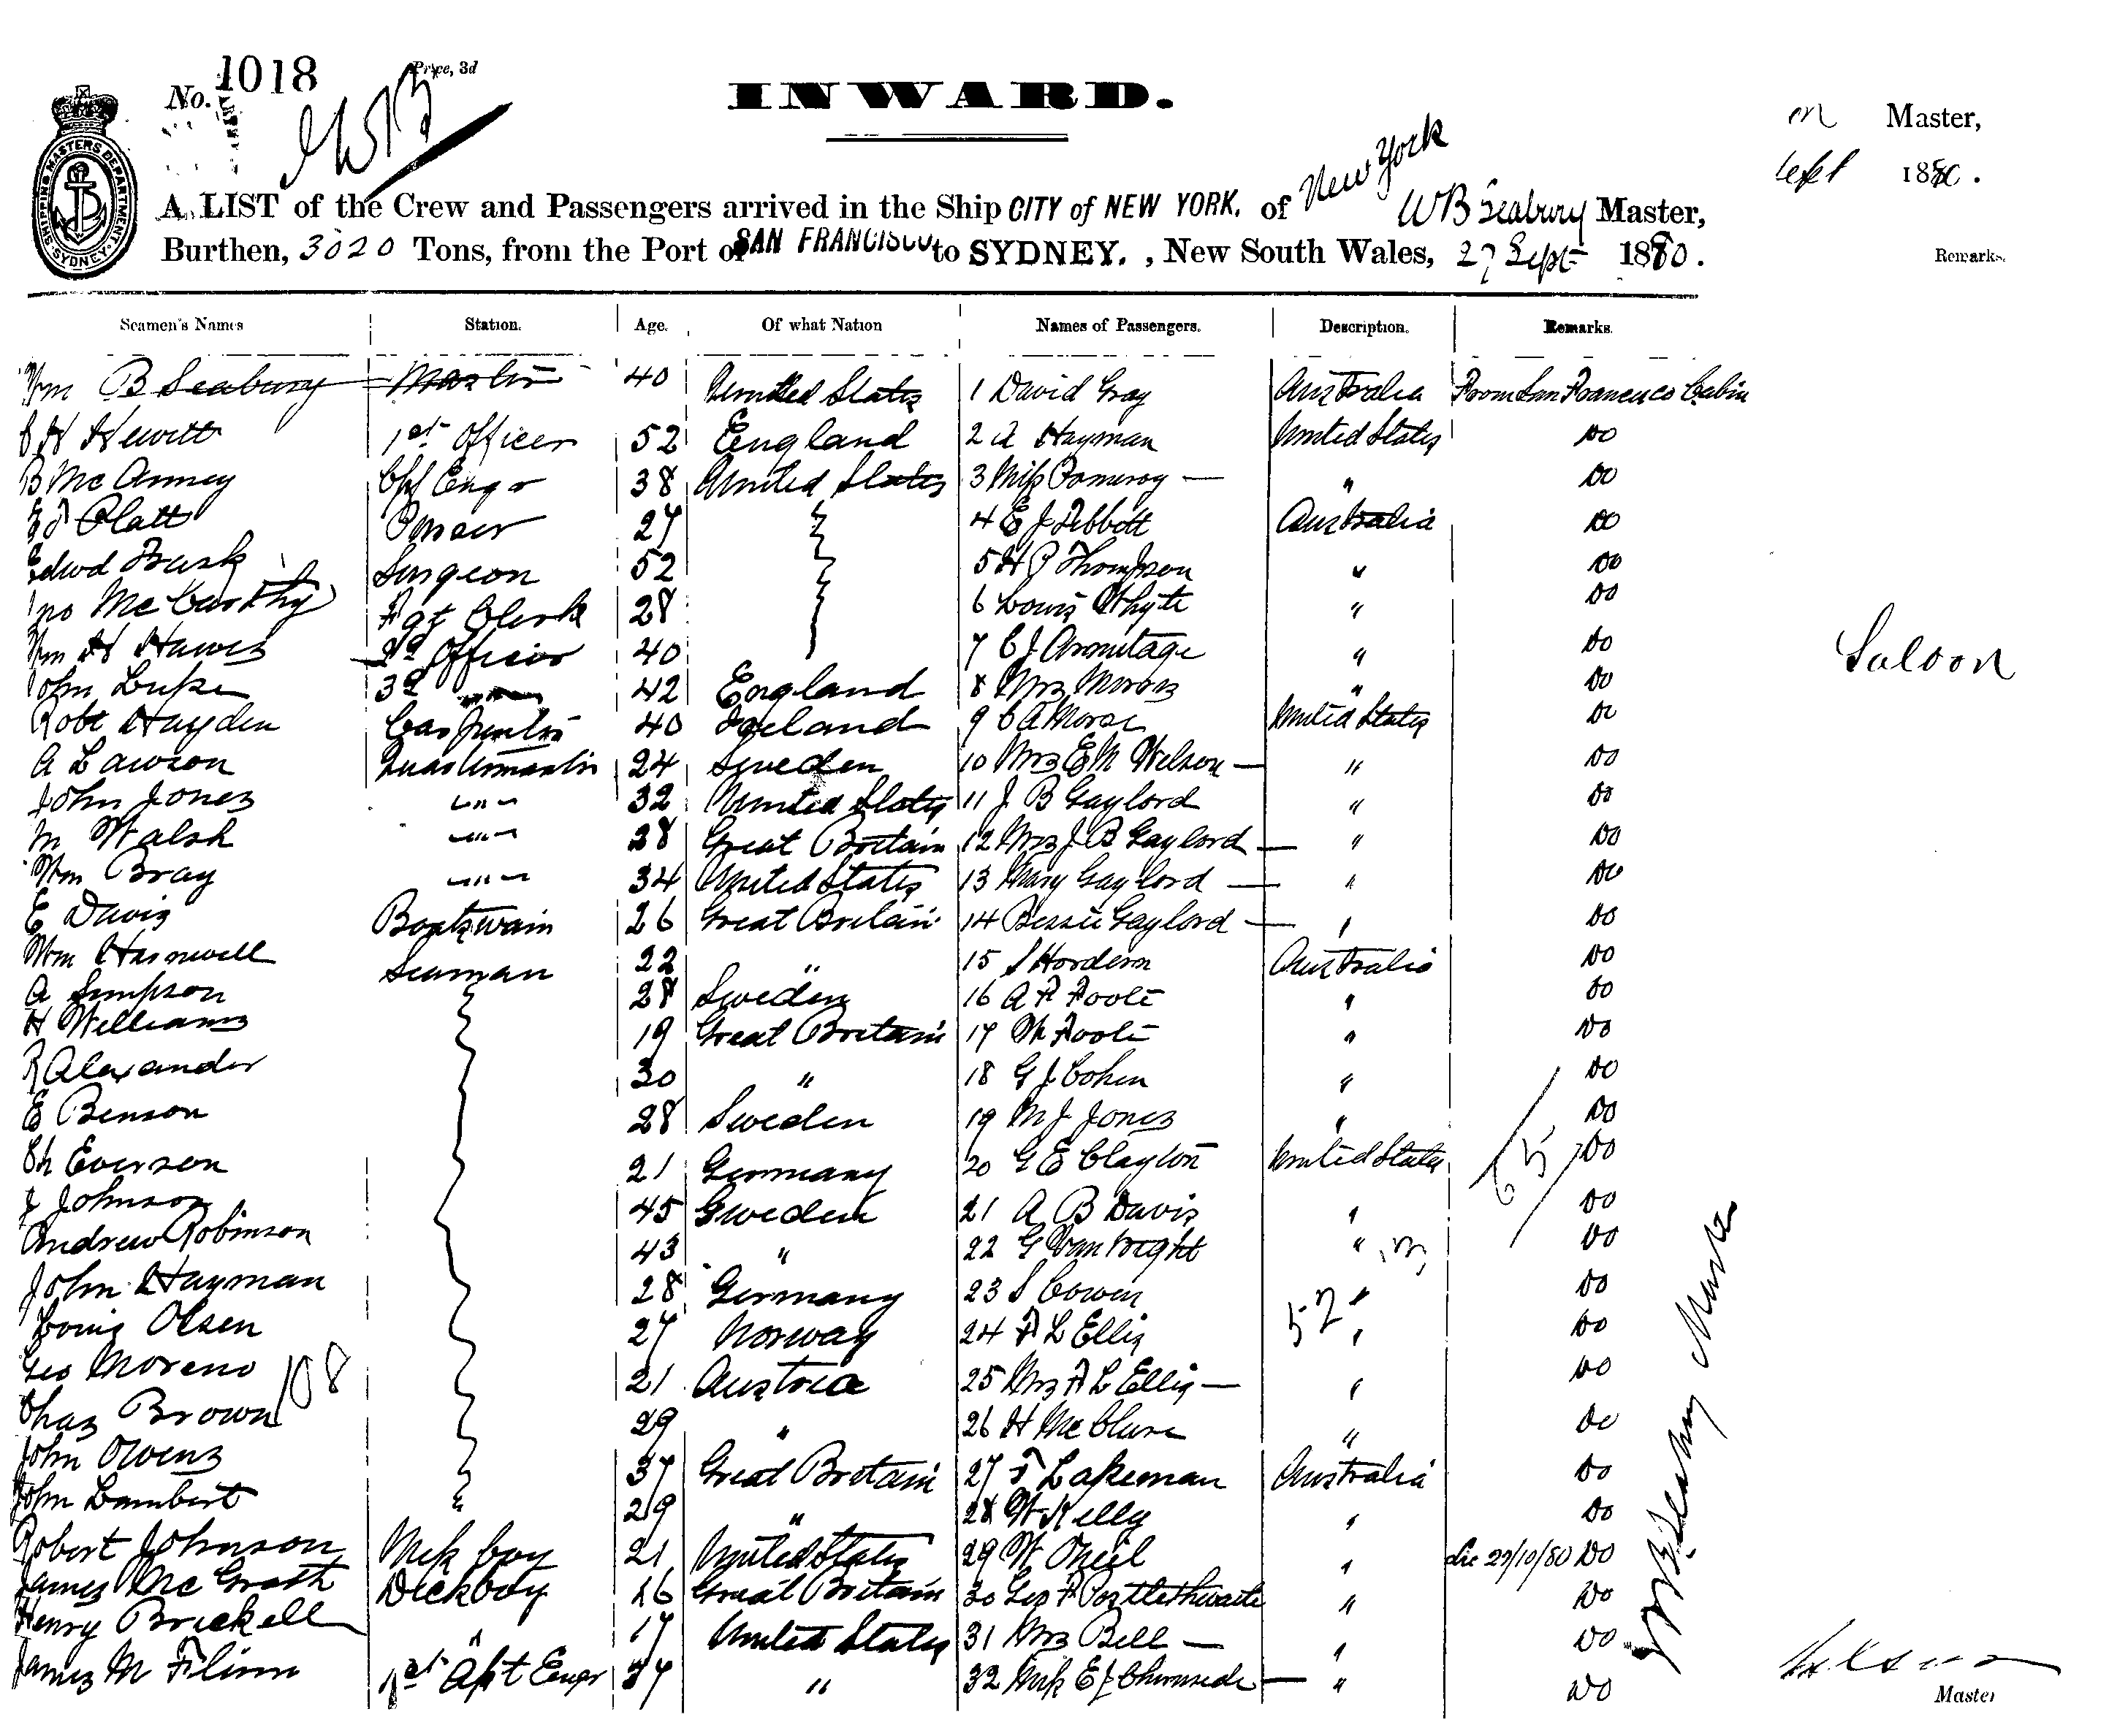 No. 1018
Price, 3d
INWARD.
Master,
Sept 1880.
A LIST of the Crew and Passengers arrived in the Ship CITY of NEW YORK. of New York WB Seabury Master,
Burthen, 3020 Tons, from the Port of SAN FRANCISCO to SYDNEY. , New South Wales, 27 Sept 1880.
SHIPPING MASTERS DEPARTMENT SYDNEY
Remarks.
Seamen's Names Station. Age. Of what Nation Names of Passengers. Description. Remarks.
Wm B Seabury Master 40 United States 1 David Gray Australia From San Francisco Cabin
Hewitt 1st Officer 52 England 2 A Hayman United States Do
B McAnney Chf Engr 38 United States 3 Miss Pomeroy — " Do
Platt Purser 27 4 E J Tebbott Australia Do
Edwd Trask Surgeon 52 5 H P Thompson " Do
Jno McCarthy Fgt Clerk 28 6 Louis Whyte " Do
Wm H Hawes 2d Officer 40 7 C J Armitage " Do
John Luke 3d 42 England 8 Mrs " Do
Robt Hayden Carpenter 40 Ireland 9 C A Morse United States Do
A Lawson Quartermaster 24 Sweden 10 Mrs E M Wilson — " Do
John Jones " 32 United States 11 J B Gaylord " Do
M Walsh " 28 Great Britain 12 Mrs J B Gaylord — " Do
Wm Bray " 34 United States 13 Mary Gaylord — " Do
E Davis Boatswain 26 Great Britain 14 Bessie Gaylord — " Do
Wm Seaman 22 " 15 S Hordern Australia Do
A Simpson 28 Sweden 16 A F Foote " Do
H Williams 19 Great Britain 17 W Foote " Do
R Alexander 30 " 18 G J Cohen " Do
E Benson 28 Sweden 19 M J Jones " Do
Ch Everson 21 Germany 20 G E Clayton United States 65 Do
J Johnson 45 Sweden 21 A B Davis " Do
Andrew Robinson 43 " 22 G " 13 Do
John Hayman 28 Germany 23 S Cowen " Do
Louis Olsen 27 Norway 24 F L Ellis 52 " Do
Geo Moreno 108 21 Austria 25 Mrs F L Ellis — " Do
Chas Brown 29 " 26 H McClure " Do
John Owens 37 Great Britain 27 F Lakeman Australia Do
John Lambert 29 " 28 W Kelly " Do
Robert Johnson Mess boy 21 United States 29 W Oneil " 29/10/80 Do
James McGrath Deckboy 16 Great Britain 30 Geo F Postlethwaite " Do
Henry Brickell " 17 United States 31 Mrs Bell — " Do
James M Flinn 1st Asst Engr 37 " 32 Miss E J Chirnside — " Do
Saloon
W B Seabury Master
Master